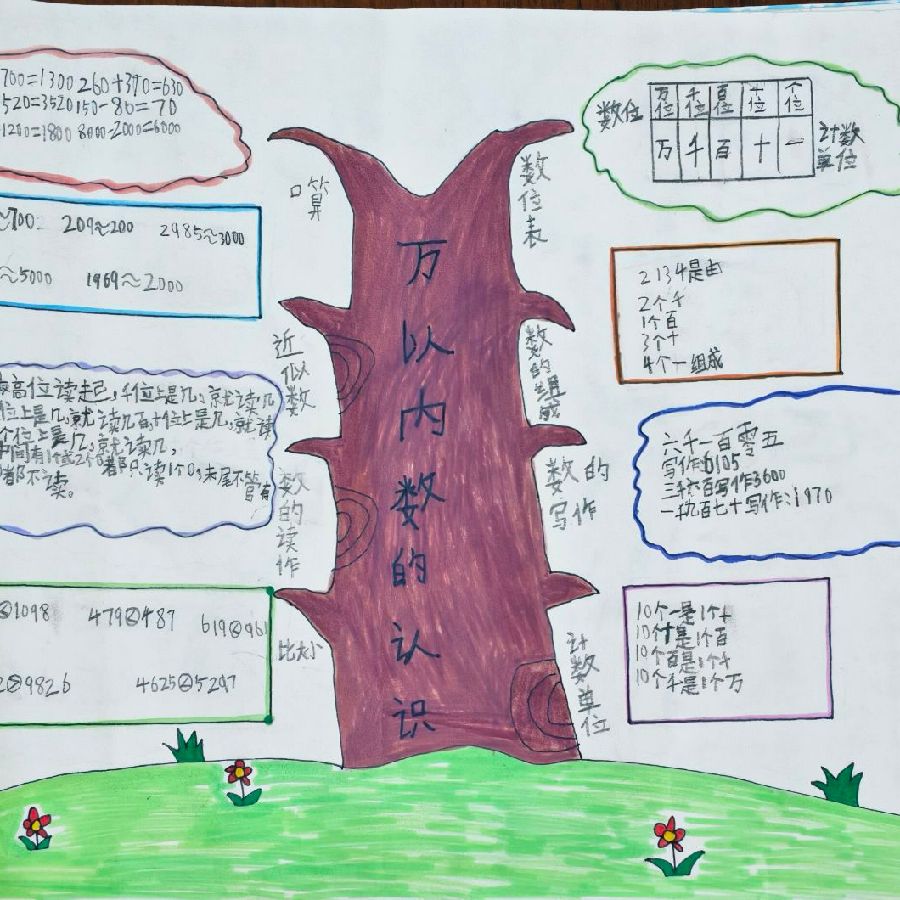 万以内数的认识
口算
700=1300 260+370=630
520=3520 150-80=70
1200=1800 8000-2000=6000
近似数
≈700 209≈200 2985≈3000
≈5000 1969≈2000
数的读作
高位读起,千位上是几,就读几
位上是几,就读几百,十位上是几,就读
个位上是几,就读几,
中间有1个或2个0都只读1个0,末尾不管有
都不读。
比大小
1098 479 487 619 961
9826 4625 5297
数位表
数位 万位 千位 百位 十位 个位
万 千 百 十 一 计数单位
数的组成
2134是由
2个千
1个百
3个十
4个一组成
数的写作
六千一百零五
写作:6105
三千六百写作3600
一千九百七十写作:1970
计数单位
10个一是1个十
10个十是1个百
10个百是1个千
10个千是1个万